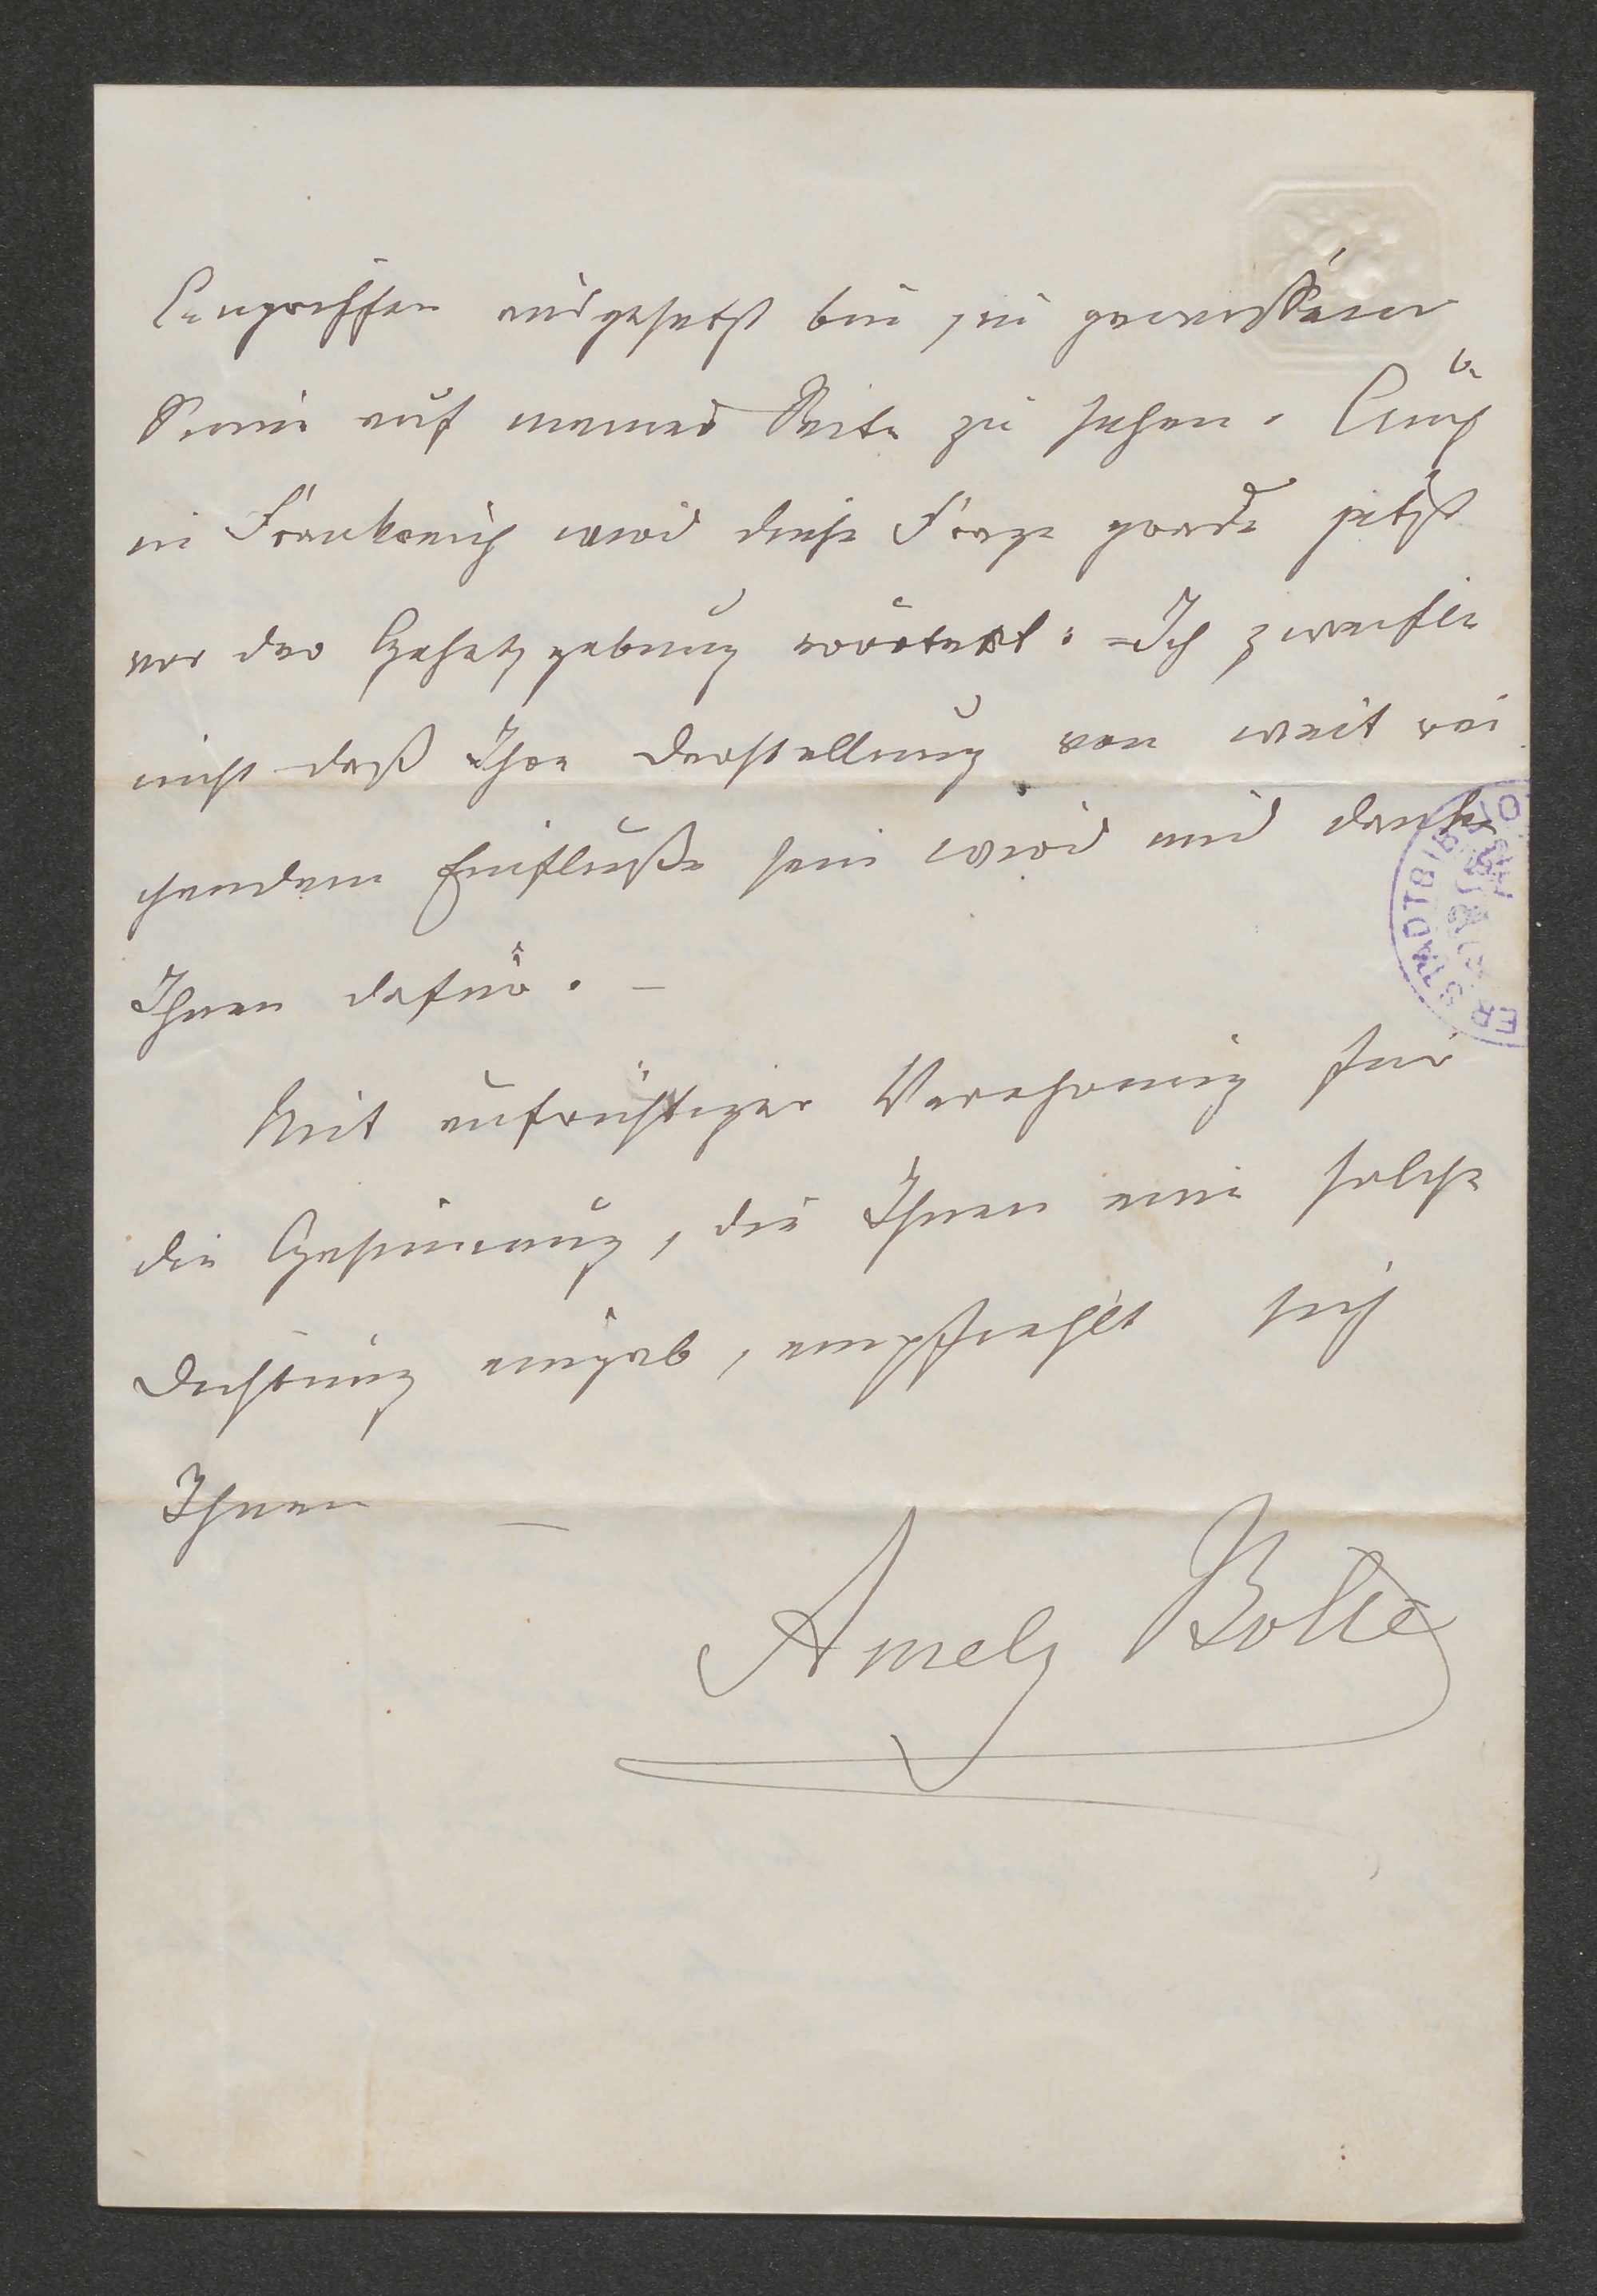 Angriffen ausgesetzt bin, in gewissem
Sinne auf meiner Seite zu sehen. Auch
in Frankreich wird diese Frage grade jetzt
vor der Gesetzgebung erörtert. – Ich zweifle
nicht daß Ihre Darstellung von weit rei
chendem Einfluße sein wird und danke
Ihnen dafür. –
Mit aufrichtiger Verehrung für
die Gesinnung, die Ihnen eine solche
Dichtung eingab, empfiehlt sich
Ihnen –
Amely Bölte
ER STADTBIB